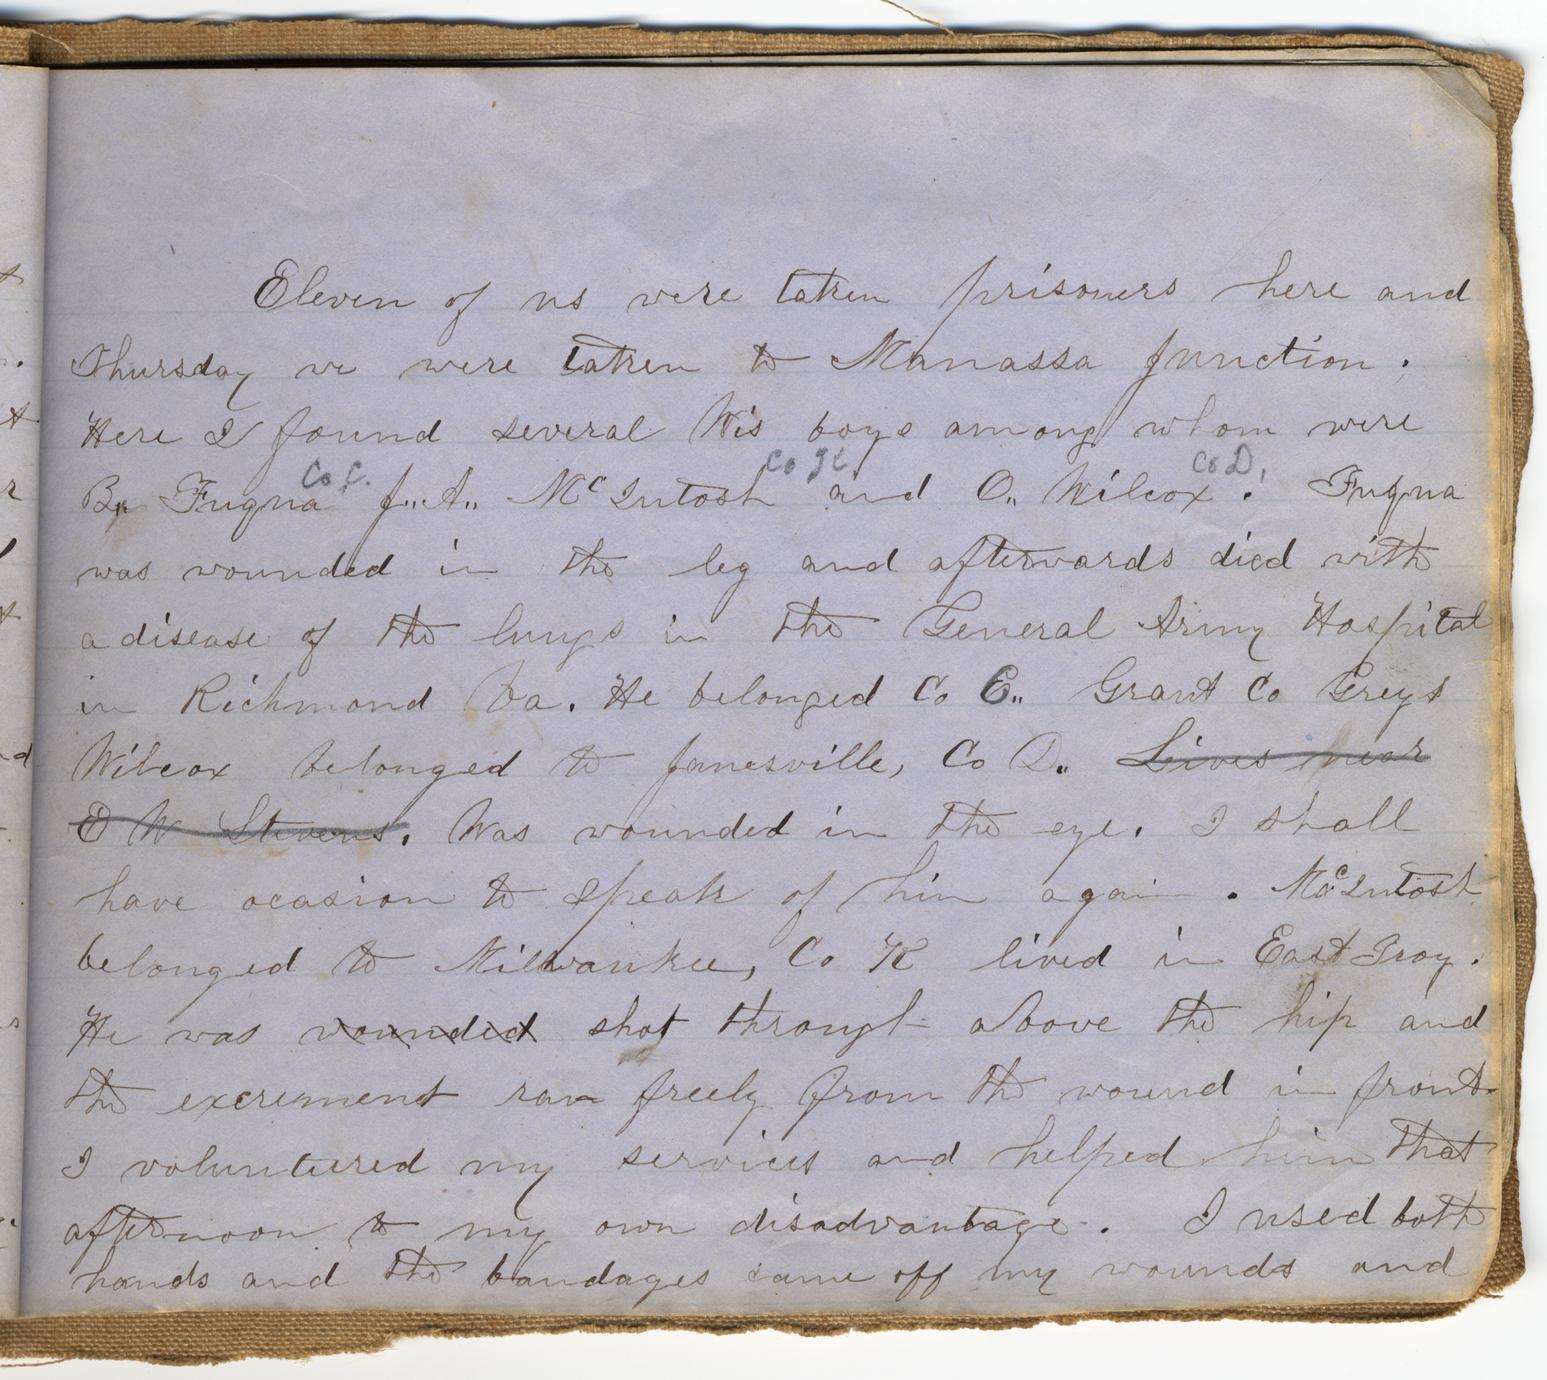 Eleven of us were taken prisoners here and
Thursday we were taken to Manassa Junction.
Here I found several Wis boys among whom were
Co C. Co K. Co D.
B,, Fuqua J,, A,, McIntosh and O,, Wilcox. Fuqua
was wounded in the leg and afterwards died with
a disease of the lungs in the General Army Hospital
in Richmond Va. He belonged Co E,, Grant Co Greys
Wilcox belonged to Janesville, Co D,, Lives near
O W Stevens. Was wounded in the eye. I shall
have ocasion to speak of him again. McIntosh
belonged to Milwaukee, Co K lived in East Troy.
He was wounded shot through above the hip and
the excrement ran freely from the wound in front.
I voluntered my services and helped him that
afternoon to my own disadvantage. I used both
hands and the bandages came off my wounds and